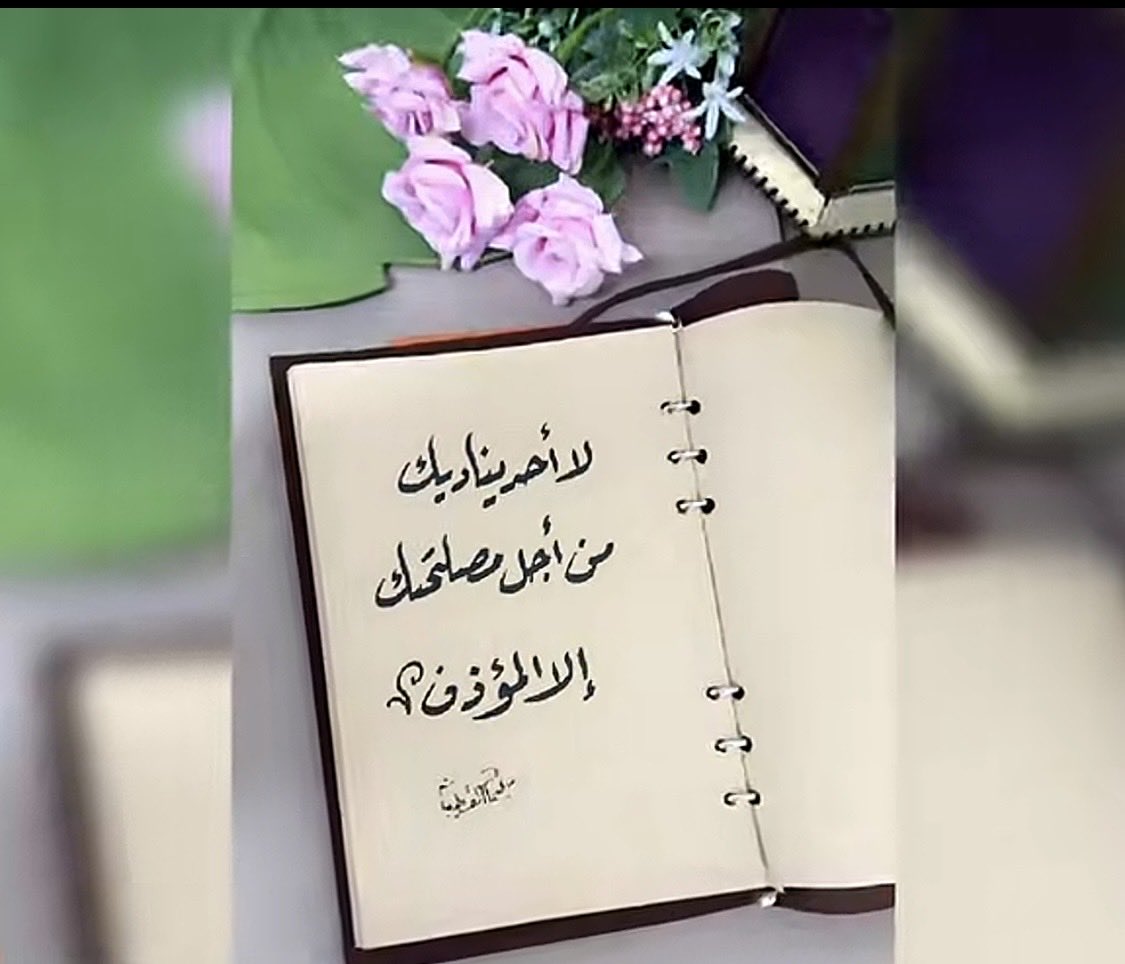 لا أحد يناديك
من أجل مصلحتك
إلا المؤذن